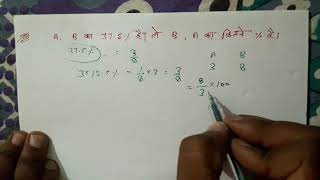 A, B का 37.5% है। तो B, A का कितने % है।
37.5% = 3/8 A B
3 × 12.5% = 1/8 × 3 = 3/8 3 8
= 8/3 × 100